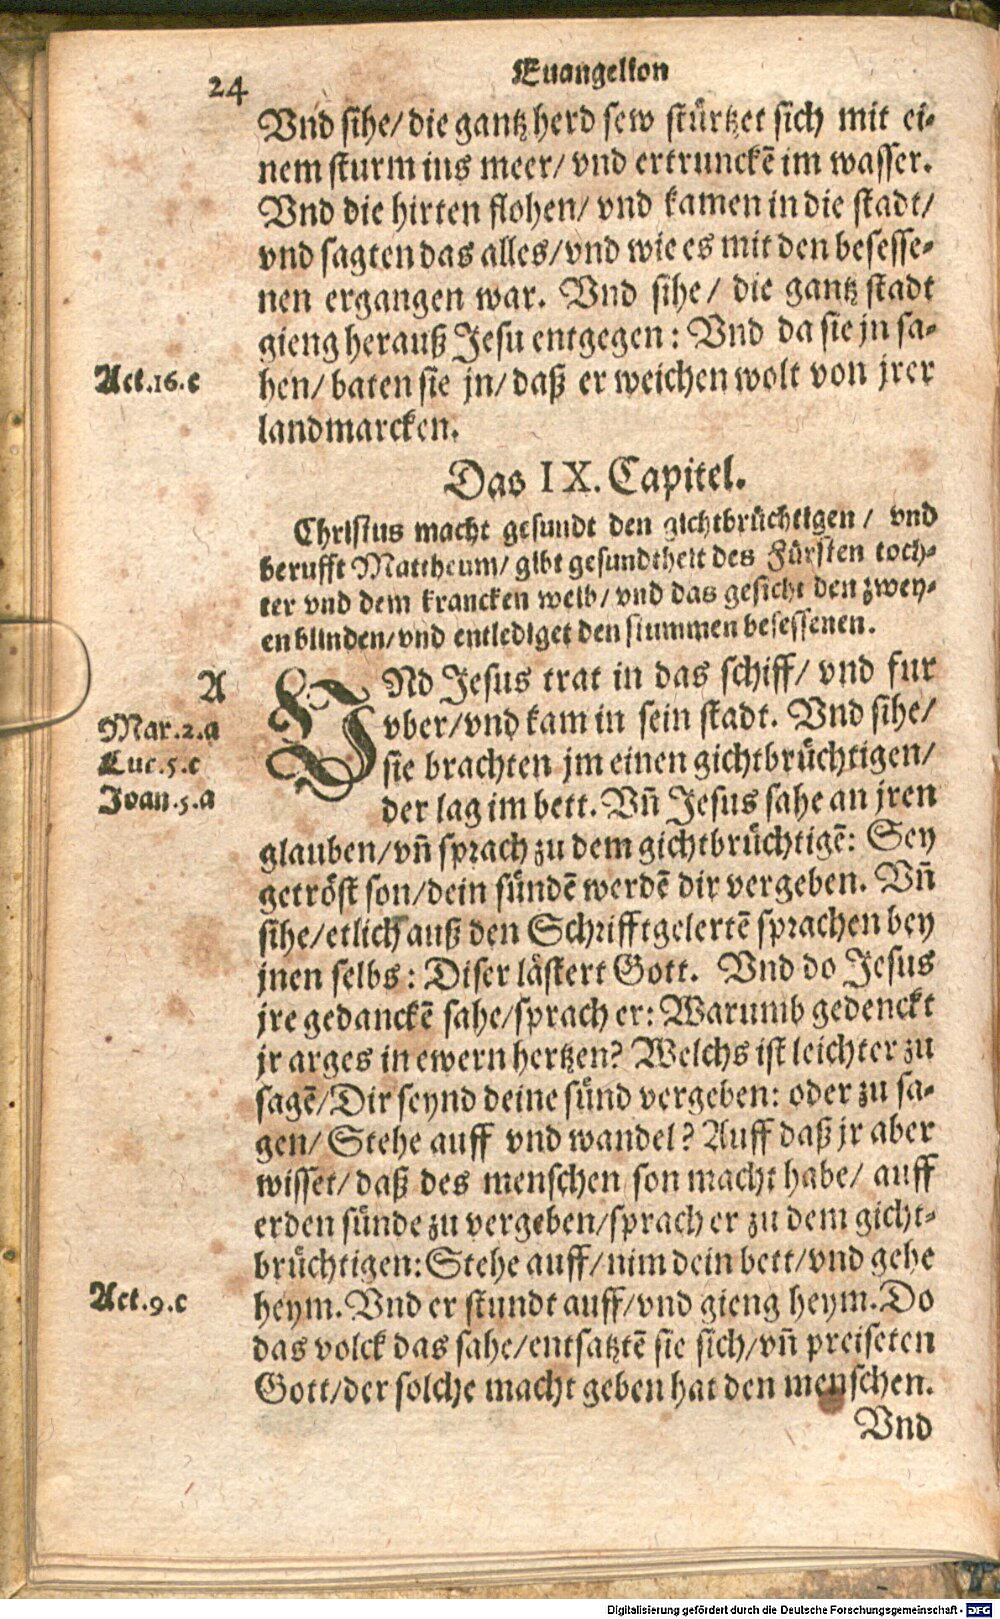 24
Euangelion
Vnd sihe/ die gantz herd sew stürtzet sich mit ei-
nem sturm ins meer/ vnd ertrunckē im wasser.
Vnd die hirten flohen/ vnd kamen in die stadt/
vnd sagten das alles/ vnd wie es mit den besesse-
nen ergangen war. Vnd sihe/ die gantz stadt
gieng herauß Jesu entgegen: Vnd da sie jn sa-
Act.16.c
hen/ baten sie jn/ daß er weichen wolt von jrer
landmarcken.
Das IX. Capitel.
Christus macht gesundt den gichtbrüchtigen/ vnd
berufft Mattheum/ gibt gesundtheit des Fürsten toch-
ter vnd dem krancken weib/ vnd das gesicht den zwey-
en blinden/ vnd entlediget den stummen besessenen.
A
VNd Jesus trat in das schiff/ vnd fur
Mar.2.a
vber/ vnd kam in sein stadt. Vnd sihe/
Luc.5.c
sie brachten jm einen gichtbrüchtigen/
Joan.5.a
der lag im bett. Vñ Jesus sahe an jren
glauben/ vñ sprach zu dem gichtbrüchtigē: Sey
getröst son/ dein sündē werdē dir vergeben. Vñ
sihe/ etlich auß den Schrifftgelertē sprachen bey
jnen selbs: Diser lästert Gott. Vnd do Jesus
jre gedanckē sahe/ sprach er: Warumb gedenckt
jr arges in ewern hertzen? Welchs ist leichter zu
sagē/ Dir seynd deine sünd vergeben: oder zu sa-
gen/ Stehe auff vnd wandel? Auff daß jr aber
wisset/ daß des menschen son macht habe/ auff
erden sünde zu vergeben/ sprach er zu dem gicht-
brüchtigen: Stehe auff/ nim dein bett/ vnd gehe
Act.9.c
heym. Vnd er stundt auff/ vnd gieng heym. Do
das volck das sahe/ entsatztē sie sich/ vñ preiseten
Gott/ der solche macht geben hat den menschen.
Vnd
Digitalisierung gefördert durch die Deutsche Forschungsgemeinschaft - DFG